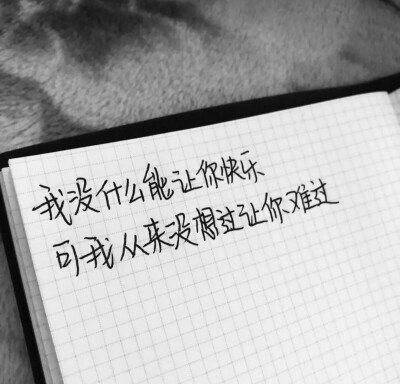 我没什么能让你快乐
可我从来没想过让你难过